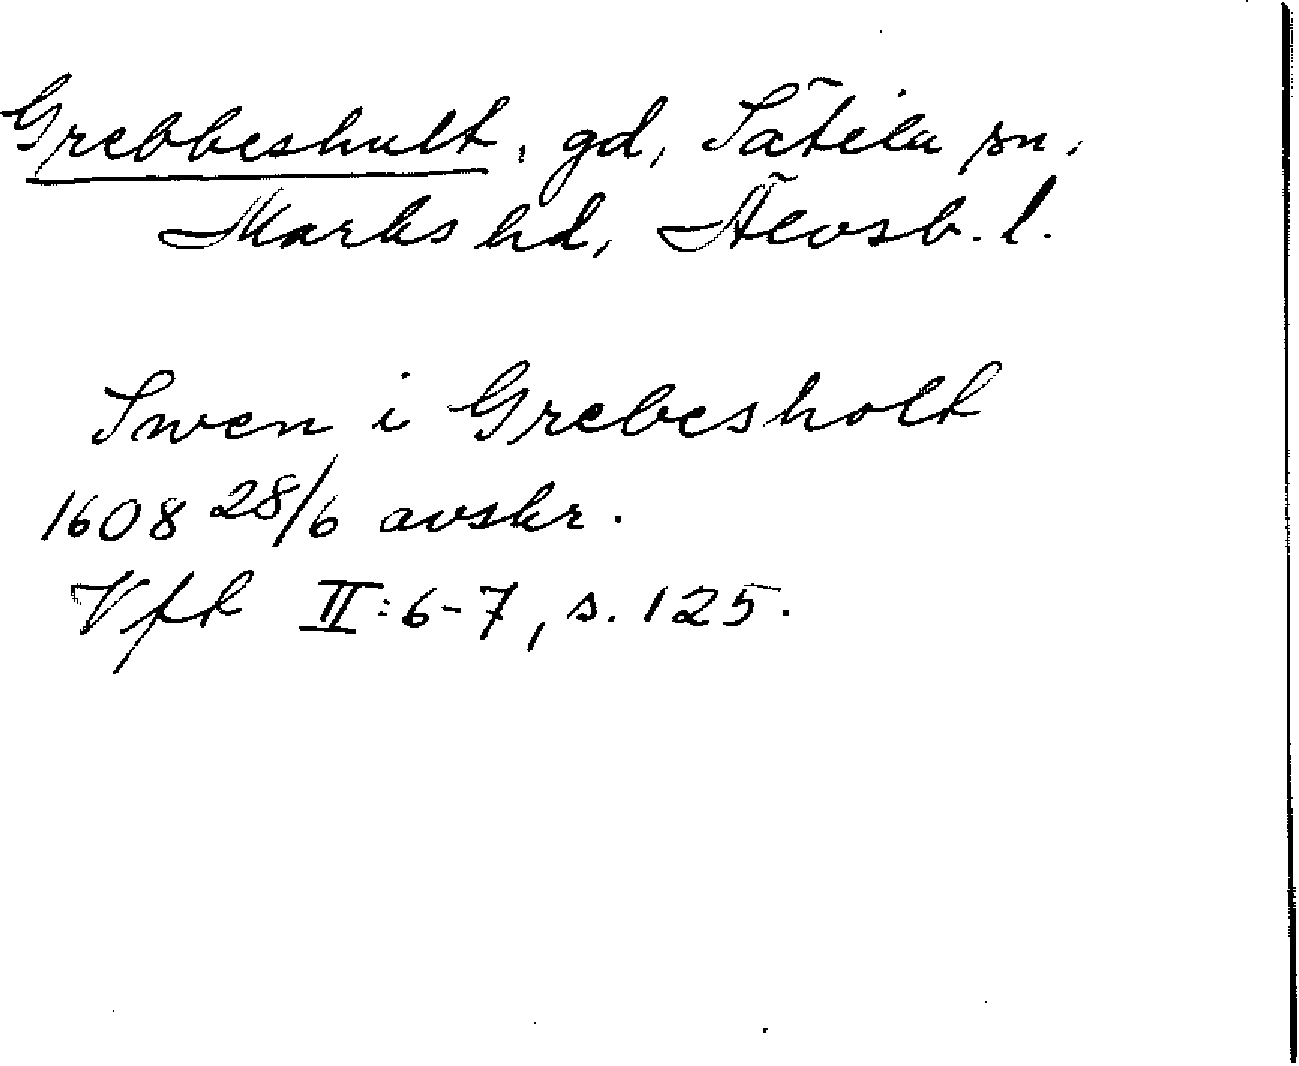 Grebbeshult, gd, Sätila sn,
Marks hd, Älvsb. l.
Swen i Grebesholt
1608 28/6 avskr.
Vfl II:6-7, s. 125.